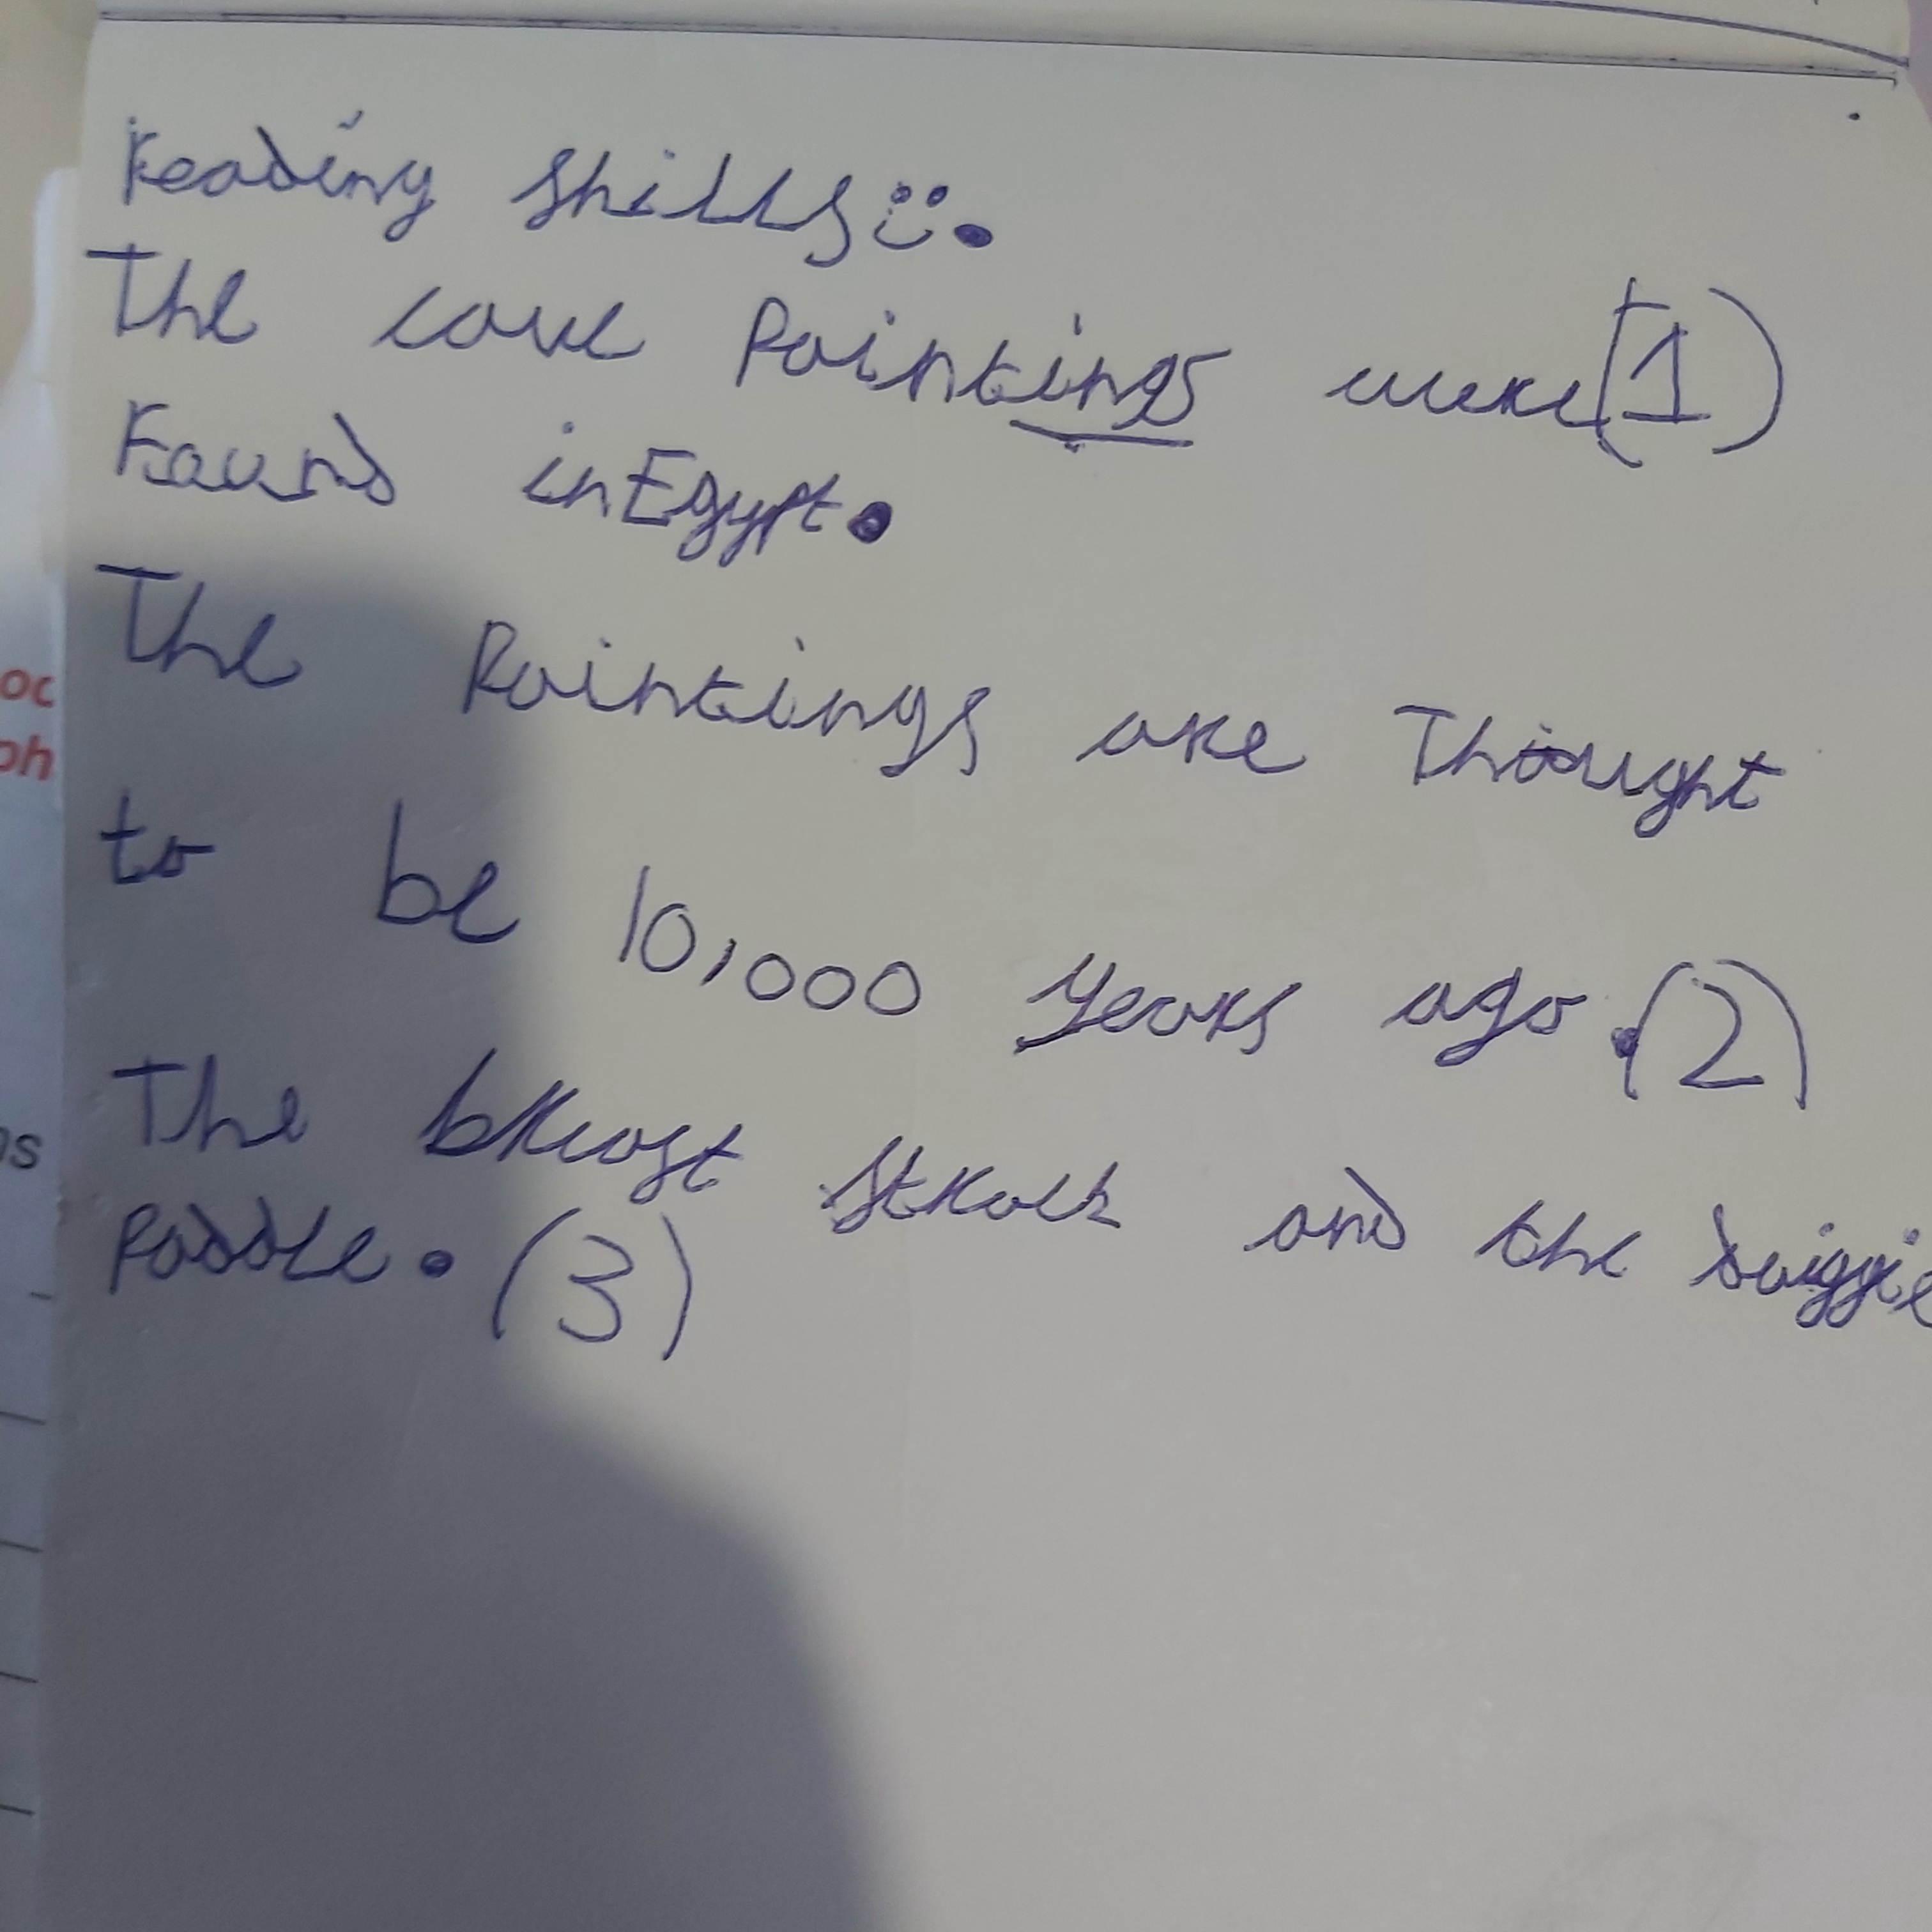 Reading skills
The cave Paintings were (1)
Found in Egypt.
The Paintings are Thought
to be 10,000 years ago. (2)
The breast strock and the doiggie
Paddle. (3)
oc
ph
s